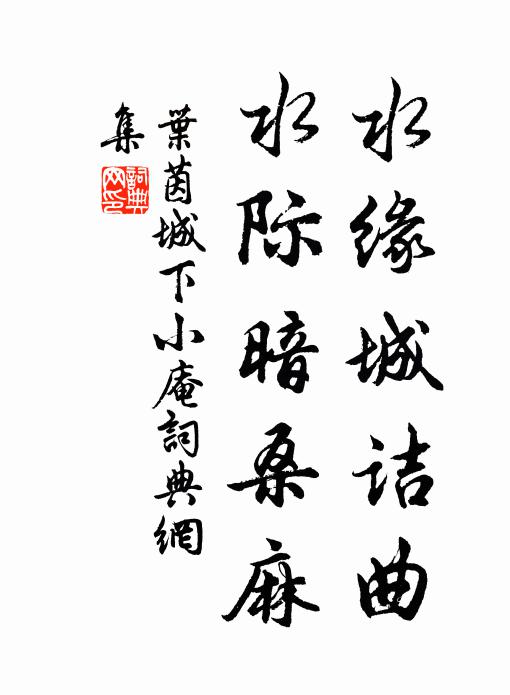 水缘城诘曲
水际暗桑麻
葉茵城下小庵詞典網
集
詞典
网印